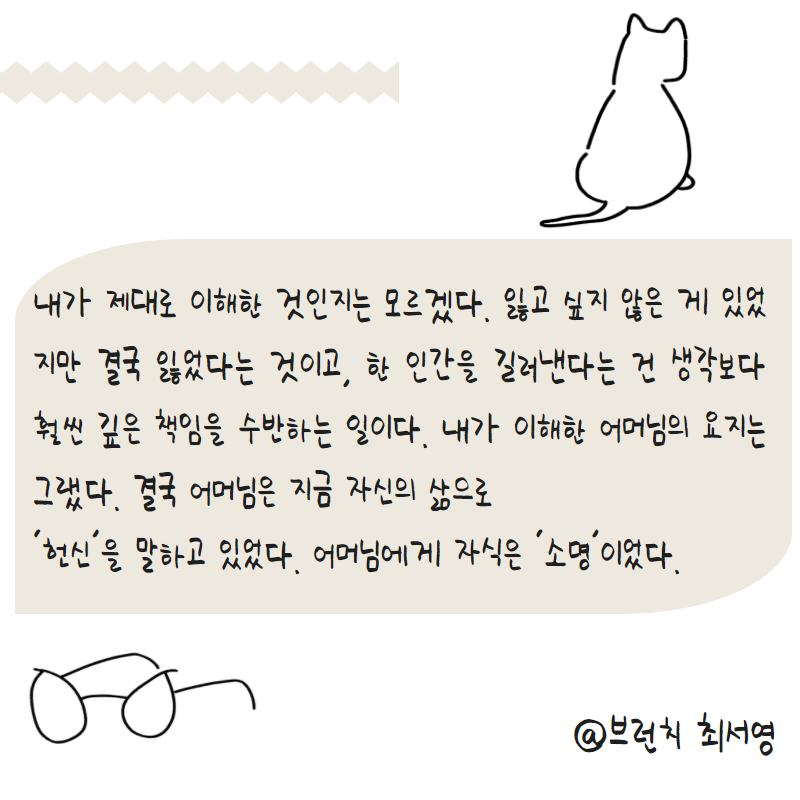 내가 제대로 이해한 것인지는 모르겠다. 잃고 싶지 않은 게 있었
지만 결국 잃었다는 것이고, 한 인간을 길러낸다는 건 생각보다
훨씬 깊은 책임을 수반하는 일이다. 내가 이해한 어머님의 요지는
그랬다. 결국 어머님은 지금 자신의 삶으로
'헌신'을 말하고 있었다. 어머님에게 자식은 '소명'이었다.
@브런치 최서영